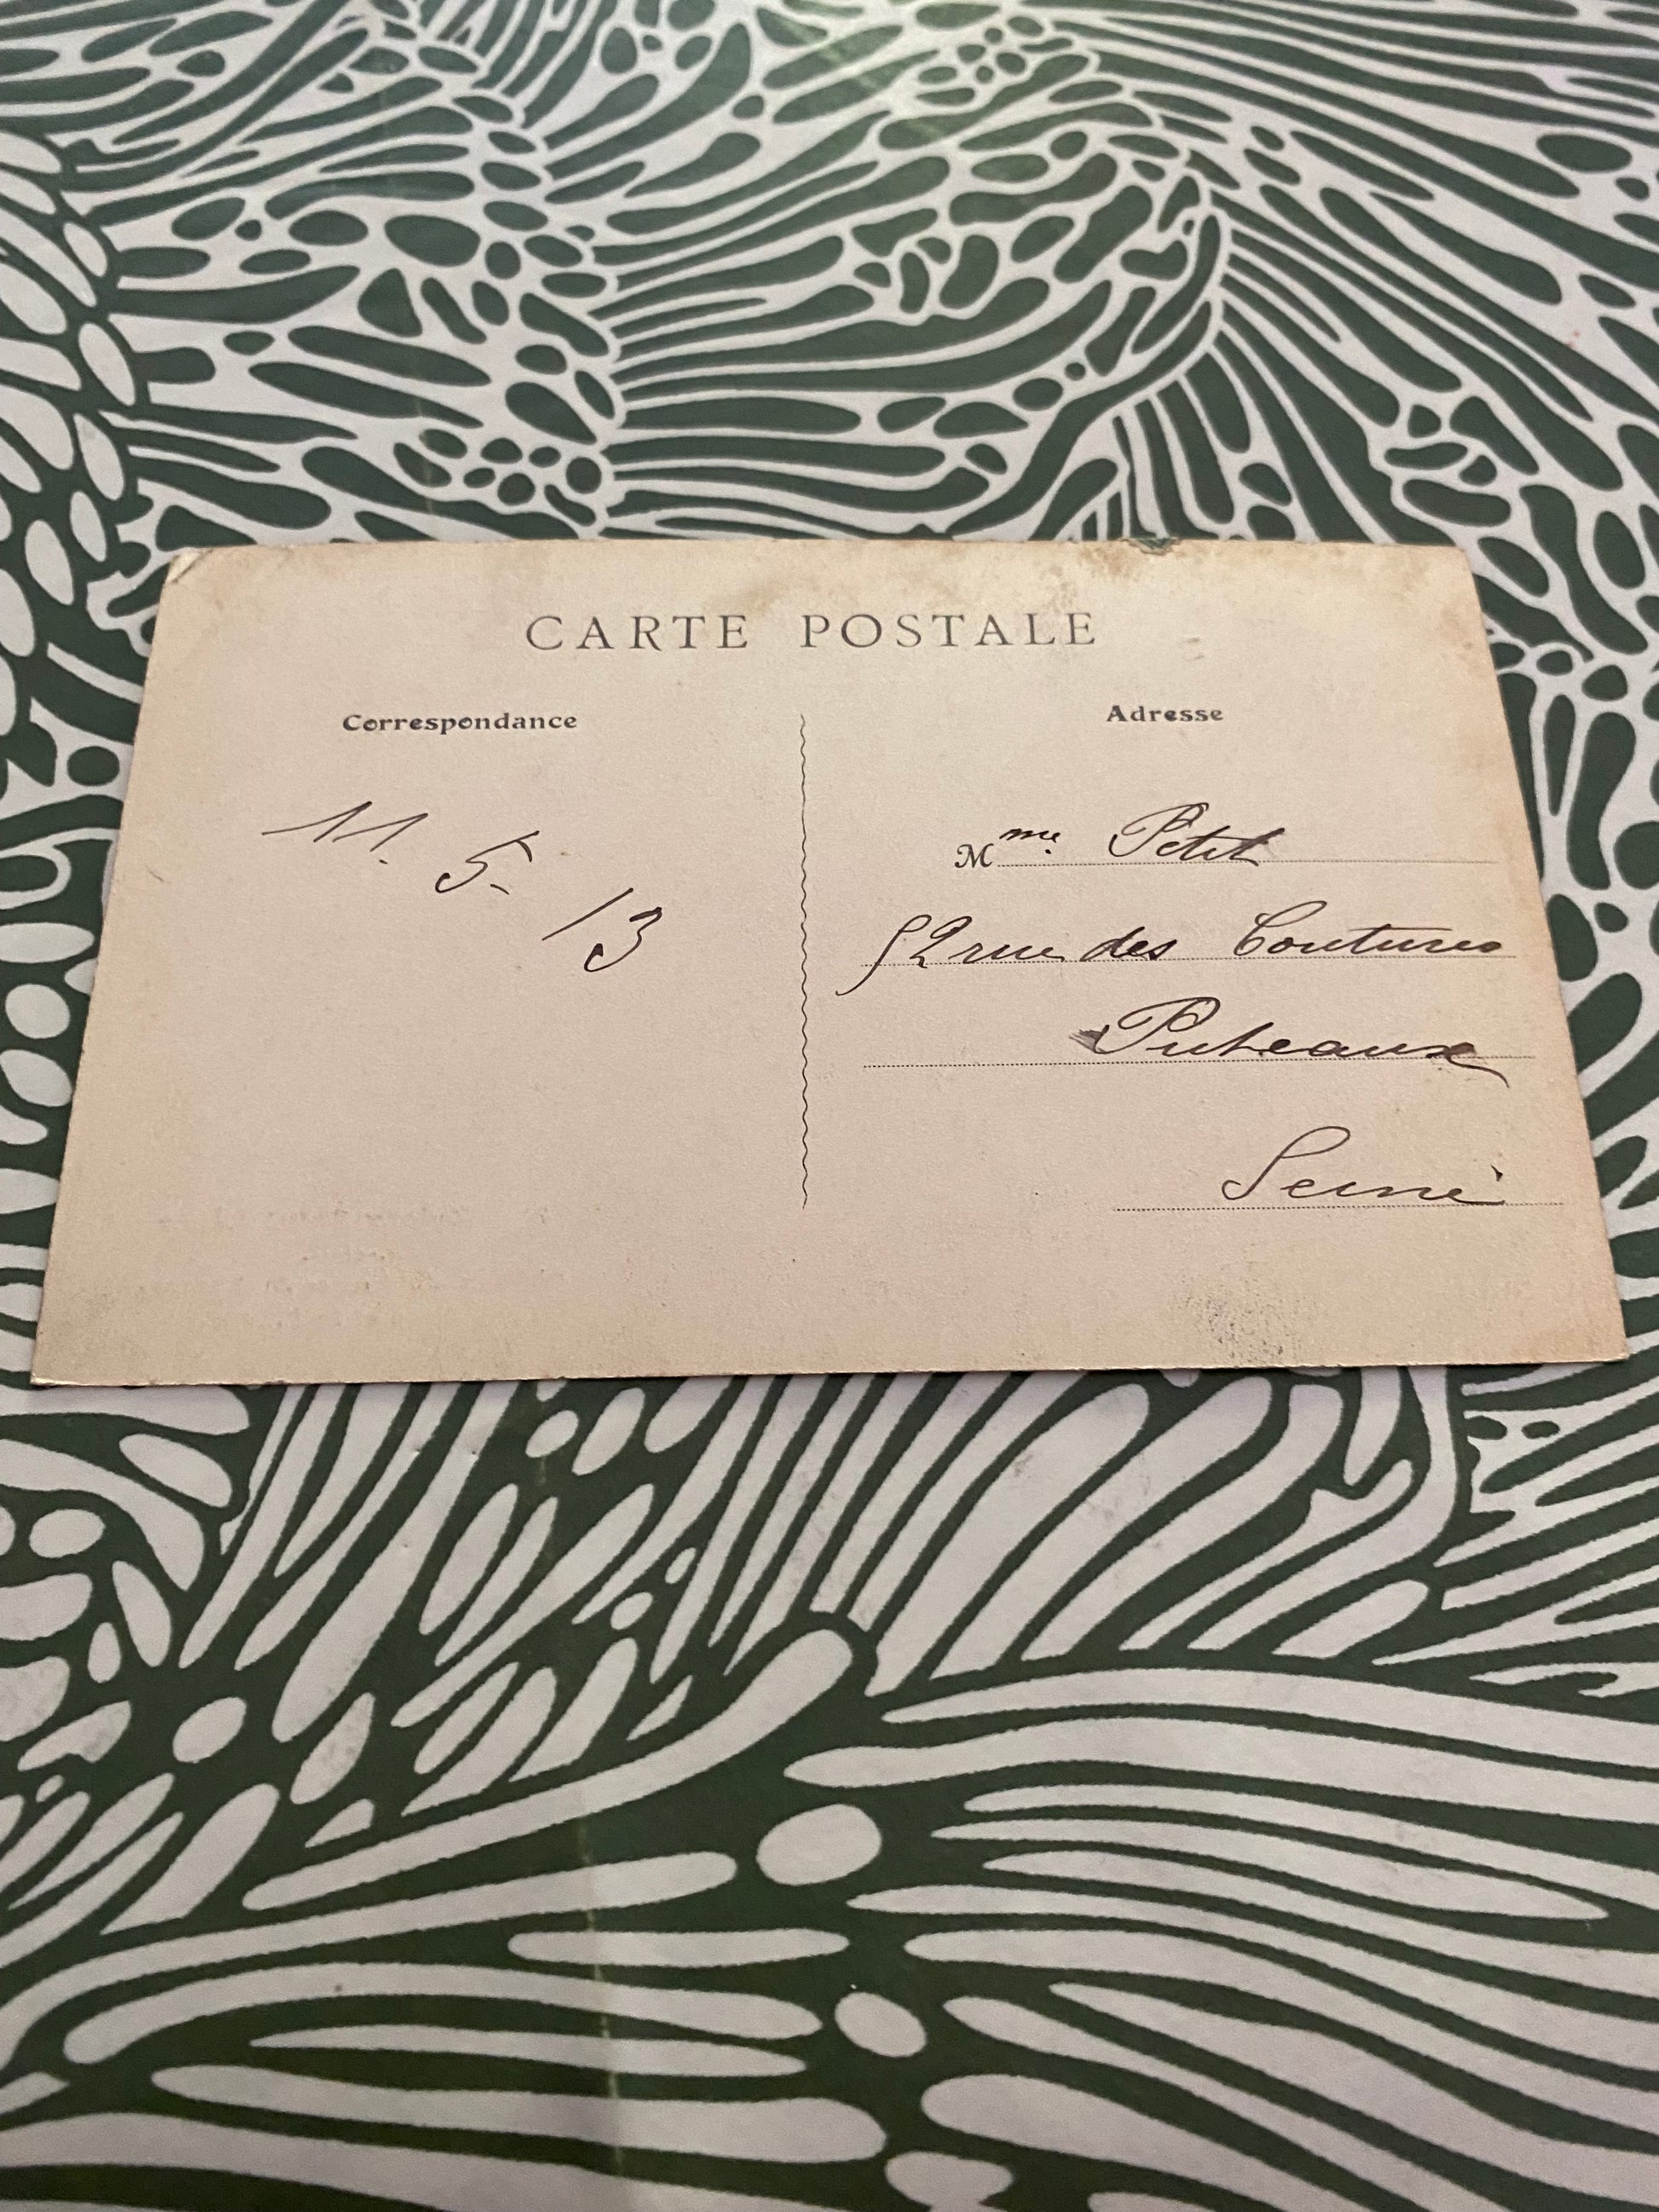 CARTE POSTALE
Correspondance
Adresse
11. 5. 13
Mme. Petit
52 rue des Coutures
Puteaux
Seine